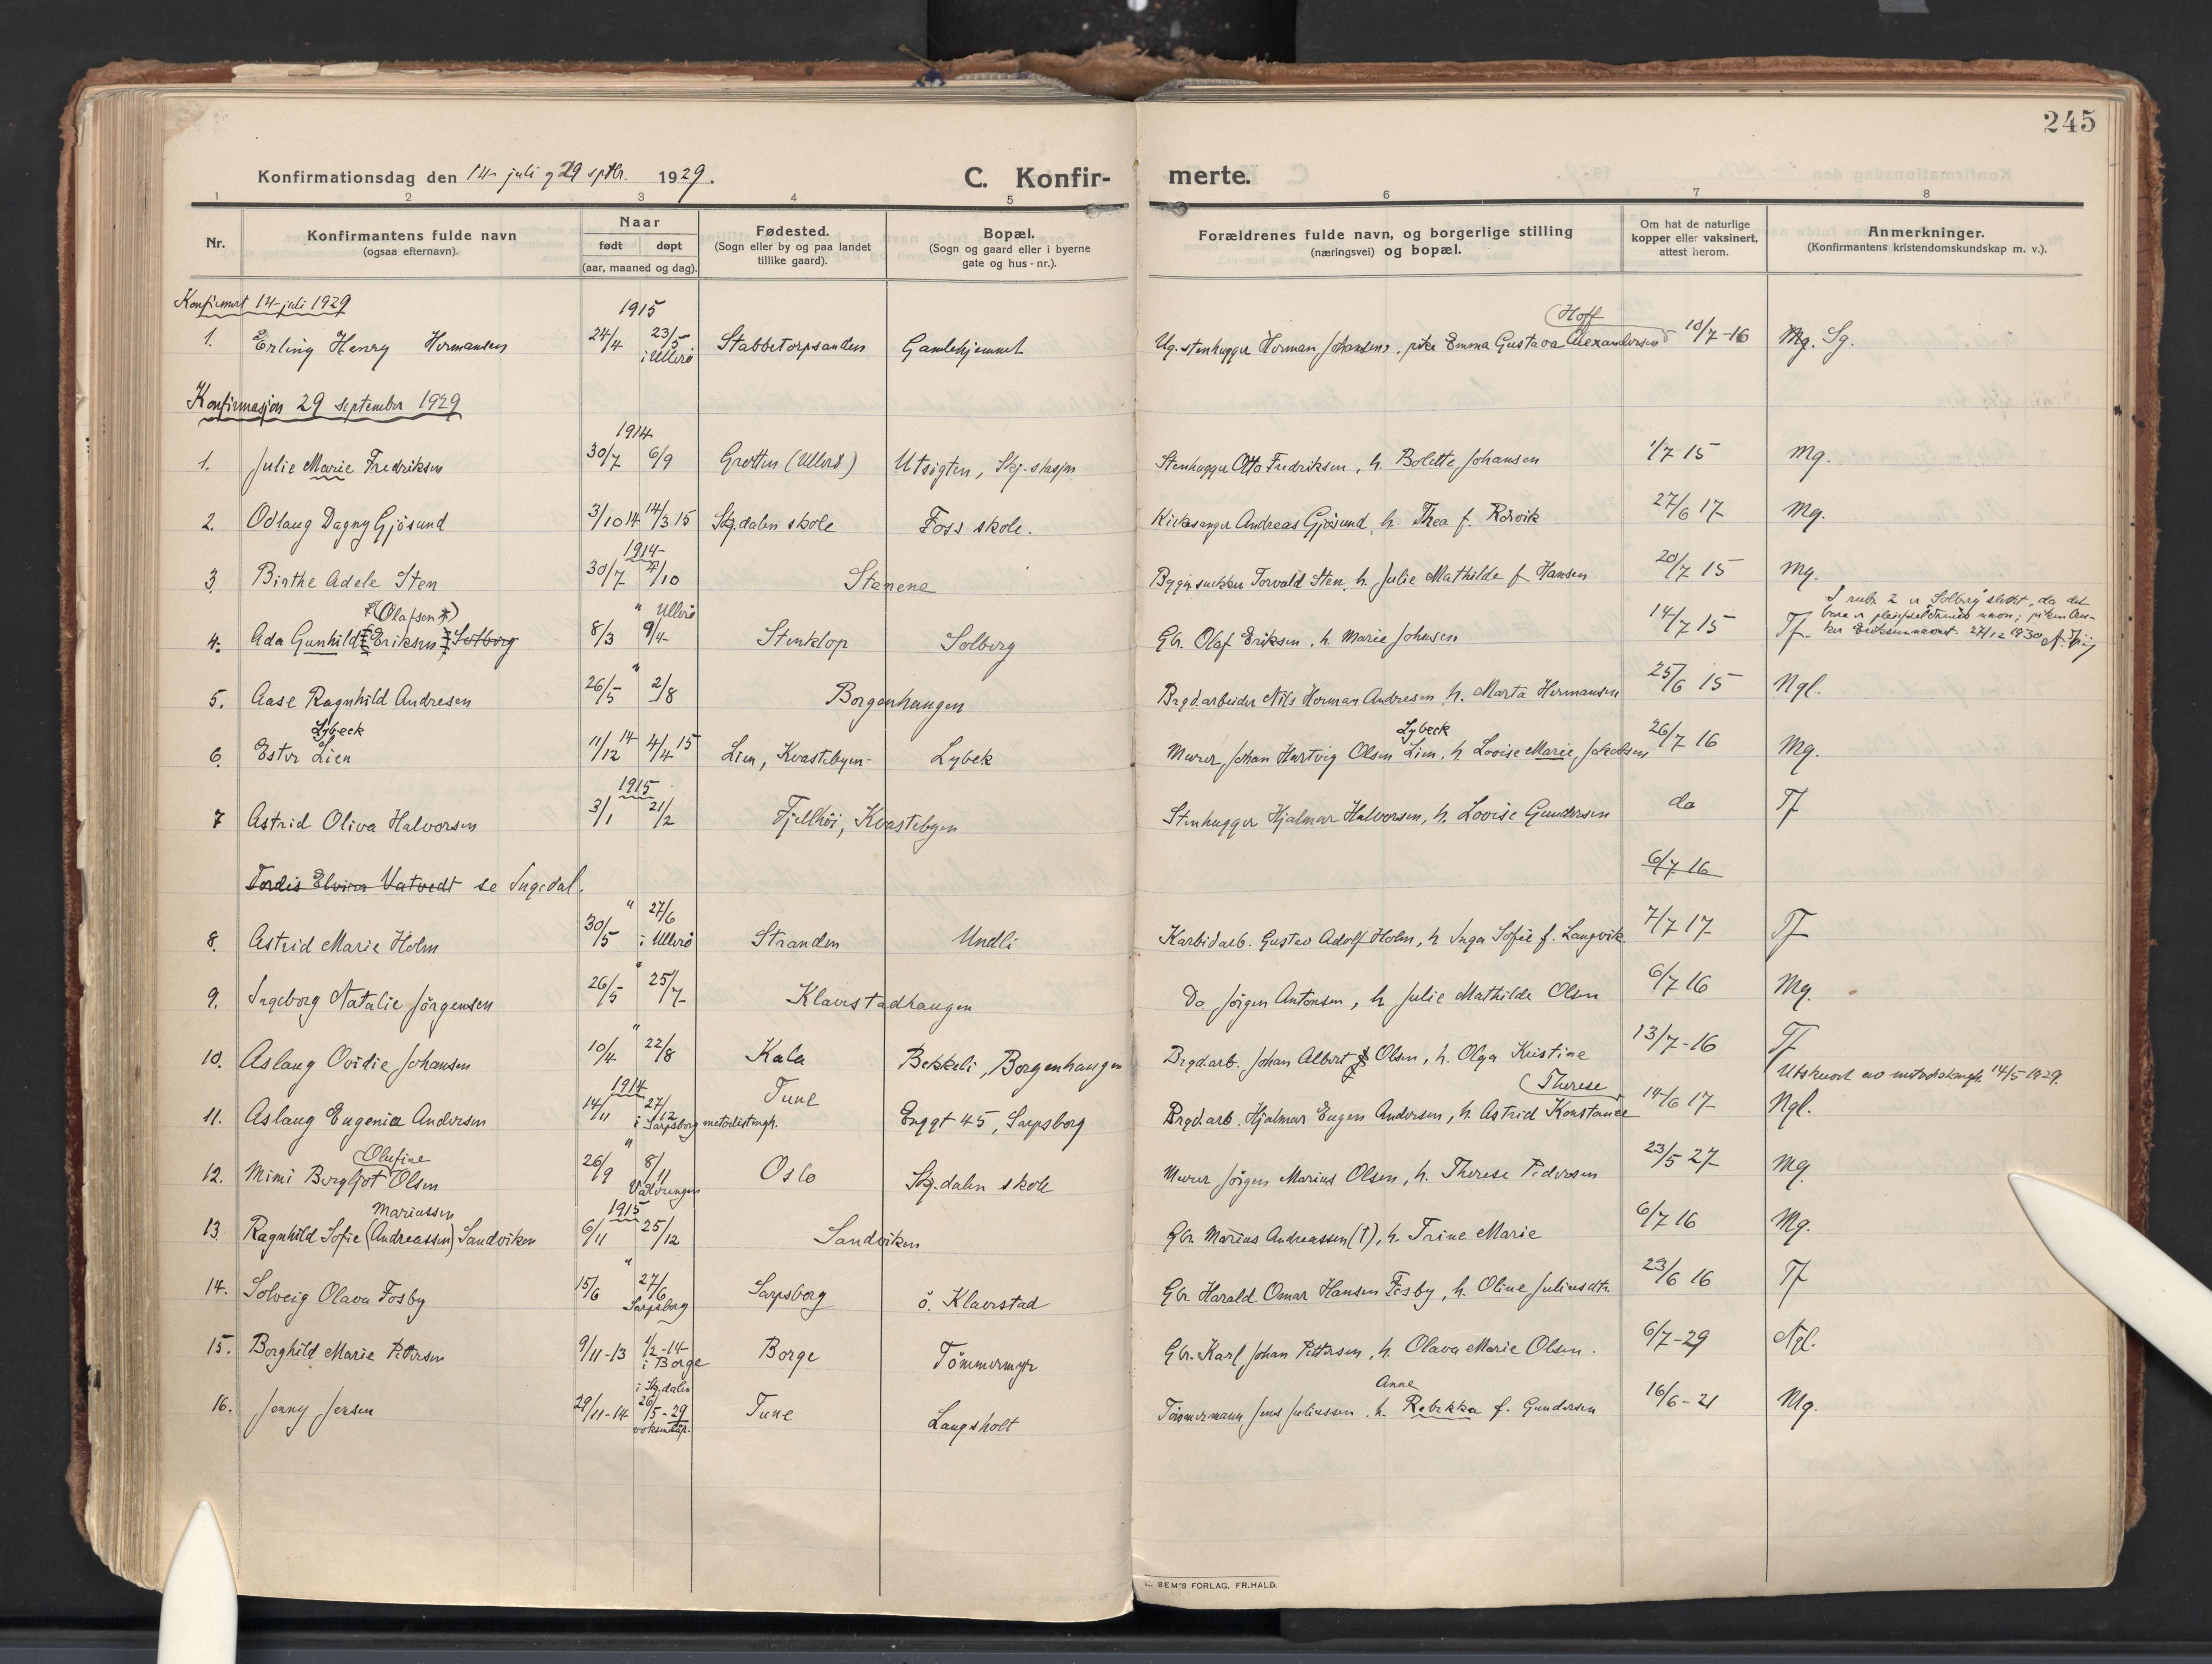 245
Konfirmationsdag den 14 juli og 29 septbr. 1929. C. Konfir- merte.
1 2 3 4 5 6 7 8
Nr. Konfirmantens fulde navn (ogsaa efternavn). Naar født døpt (aar, maaned og dag). Fødested. (Sogn eller by og paa landet tillike gaard). Bopæl. (Sogn og gaard eller i byerne gate og hus-nr.). Forældrenes fulde navn, og borgerlige stilling (næringsvei) og bopæl. Om hat de naturlige kopper eller vaksinert, attest herom. Anmerkninger. (Konfirmantens kristendomskundskap m. v.).
Konfirmert 14-juli 1929
1915
Hoff
1. Erling Henry Hermansen 24/4 23/5 i Ullerö Stabbetorpsanden Gamlehjemmet Ug. stenhugger Herman Johansens, pike Emma Gustava Alexandersen 10/7-16 Mg. Sg.
Konfirmasjon 29 september 1929
1914
1. Julie Marie Fredriksen 30/7 6/9 Grotten (Ullerö) Utsigten, Skj-stasjon Stenhugger Otto Fredriksen, h. Bolette Johansen 1/7 15 Mg.
2. Odlaug Dagny Gjösund 3/10 14 14/3 15 Skj.dalen skole Foss skole. Kirkesanger Andreas Gjösund, h. Thea f. Rörvik 27/6 17 Mg.
1914
3. Birthe Adele Sten 30/7 4/10 Stenene Byggn.snekker Torvald Sten, h. Julie Mathilde f. Hansen 20/7 15 Mg.
(Olafsen)
4. Ada Gunhild Eriksen Solberg 8/3 " 9/4 Ullerö Stenklop Solberg Gbr. Olaf Eriksen, h. Marie Johansen 14/7 15 Tf I rubr. 2 er "Solberg" slettet, da det bare er pleieforeldrenes navn; piken ønsker Eriksennavnet. 27/12 1930
5. Aase Ragnhild Andresen 26/5 " 2/8 Borgenhaugen Brgd.arbeider Nils Herman Andresen, h. Marta Hermansen 25/6 15 Ngl.
Lybeck Lybeck
6. Ester Lien 11/12 14 4/4 15 Lien, Kvastebyen Lybek Murer Johan Hartvig Olsen Lien, h. Lovise Marie Jacobsen 26/7 16 Mg.
1915
7 Astrid Oliva Halvorsen 3/1 21/2 Fjellhöi, Kvastebyen Stenhugger Hjalmar Halvorsen, h. Lovise Gundersen do Tf
Tordis Elvira Vatvedt se Ingedal. 6/7 16
8. Astrid Marie Holm 30/5 " 27/6 i Ullerö Stranden Undli Karbidarb. Gustav Adolf Holm, h. Inga Sofie f. Langvik 7/7 17 Tf
9. Ingeborg Natalie Jörgensen 26/5 " 25/7 Klavestadhaugen Do. Jörgen Antonsen, h. Julie Mathilde Olsen 6/7 16 Mg.
10. Aslaug Ovidie Johansen 10/4 " 22/8 Kala Bekkeli, Borgenhaugen Brgd.arb. Johan Albert Olsen, h. Olga Kristine 13/7-16 Tf
1914 Therese Utskrevet av metodistmgh. 14/5 1929.
11. Aslaug Eugenie Andersen 14/11 27/12 i Sarpsborg metodistmgh. Tune Enggt 45, Sarpsborg Brgd.arb. Hjalmar Eugen Andersen, h. Astrid Konstance 14/6 17 Ngl.
Olufine
12. Mimi Bergljot Olsen 26/9 " 8/11 Vålerengen Oslo Skj.dalen skole Murer Jörgen Marius Olsen, h. Therese Pedersen 23/5 27 Mg.
Mariussen 1915
13 Ragnhild Sofie (Andreassen) Sandviken 6/11 25/12 Sandviken Gbr. Marius Andreassen (†), h. Trine Marie 6/7 16 Mg.
14. Solveig Olava Fosby 15/6 " 27/6 Sarpsborg Sarpsborg ö. Klavestad Gbr. Harald Omar Hansen Fosby, h. Oline Juliusdtr 23/6 16 Tf
15. Borghild Marie Pettersen 9/11-13 1/2-14 i Borge Borge Tömmermyr Gbr. Karl Johan Pettersen, h. Olava Marie Olsen. 6/7-29 Ngl.
Anne
16. Jenny Jensen 29/11-14 i Skj.dalen 26/5-29 voksendåp. Tune Langsholt Tömmermann Jens Juliussen, h. Rebekka f. Gundersen 16/6-21 Mg.
SEM'S FORLAG, FR.HALD.